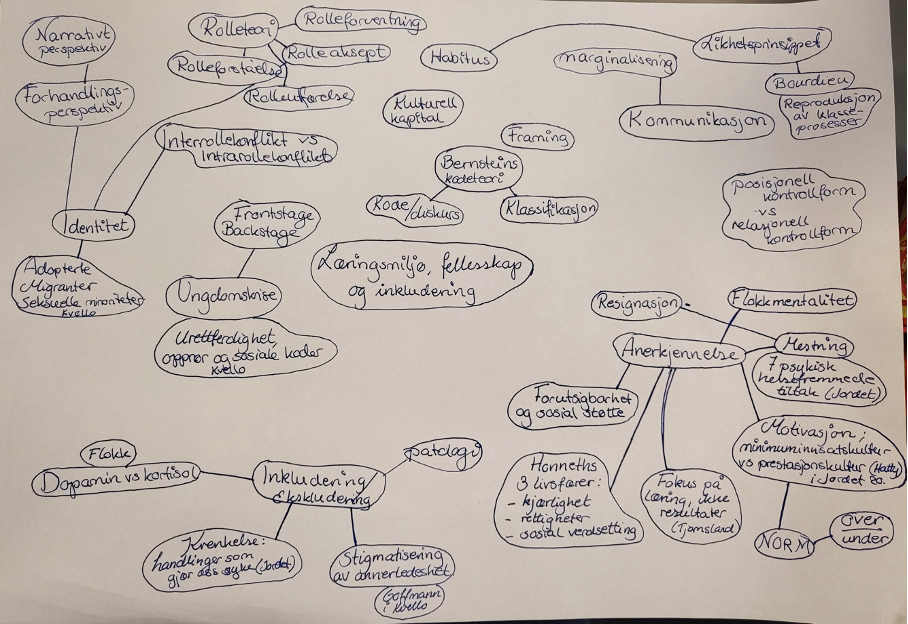 Narrativt
perspektiv
Forhandlings-
perspektiv
Rolleteori
Rolleforventning
Rolleaksept
Rolleforståelse
Rolleutførelse
Interrollekonflikt vs
Intrarollekonflikt
Identitet
Adopterte
Migranter
Seksuelle minoriteter
Kvello
Frontstage
Backstage
Ungdomskrise
Urettferdighet,
opprør og sosiale koder
Kvello
Habitus
Kulturell
kapital
Framing
Bernsteins
kodeteori
Kode/diskurs
Klassifikasjon
Læringsmiljø, fellesskap
og inkludering
marginalisering
Kommunikasjon
Likhetsprinsippet
Bourdieu
Reproduksjon
av klasse-
prosesser
posisjonell
kontrollform
vs
relasjonell
kontrollform
Resignasjon
Flokkmentalitet
Anerkjennelse
Mestring
7 psykisk
helsefremmede
tiltak (Jordet)
Forutsigbarhet
og sosial støtte
Honneths
3 livsfærer:
- kjærlighet
- rettigheter
- sosial verdsetting
Fokus på
læring, ikke
resultater
(Tjomsland)
Motivasjon;
minimuminnsatskultur
vs prestasjonskultur (Hatty)
i Jordet 80.
NORM
over
under
Flokk
Dopamin vs kortisol
Inkludering
Ekskludering
patologi
Krenkelse:
handlinger som
gjør oss syke (Jordet)
Stigmatisering
av annerledeshet
Goffmann
i Kvello